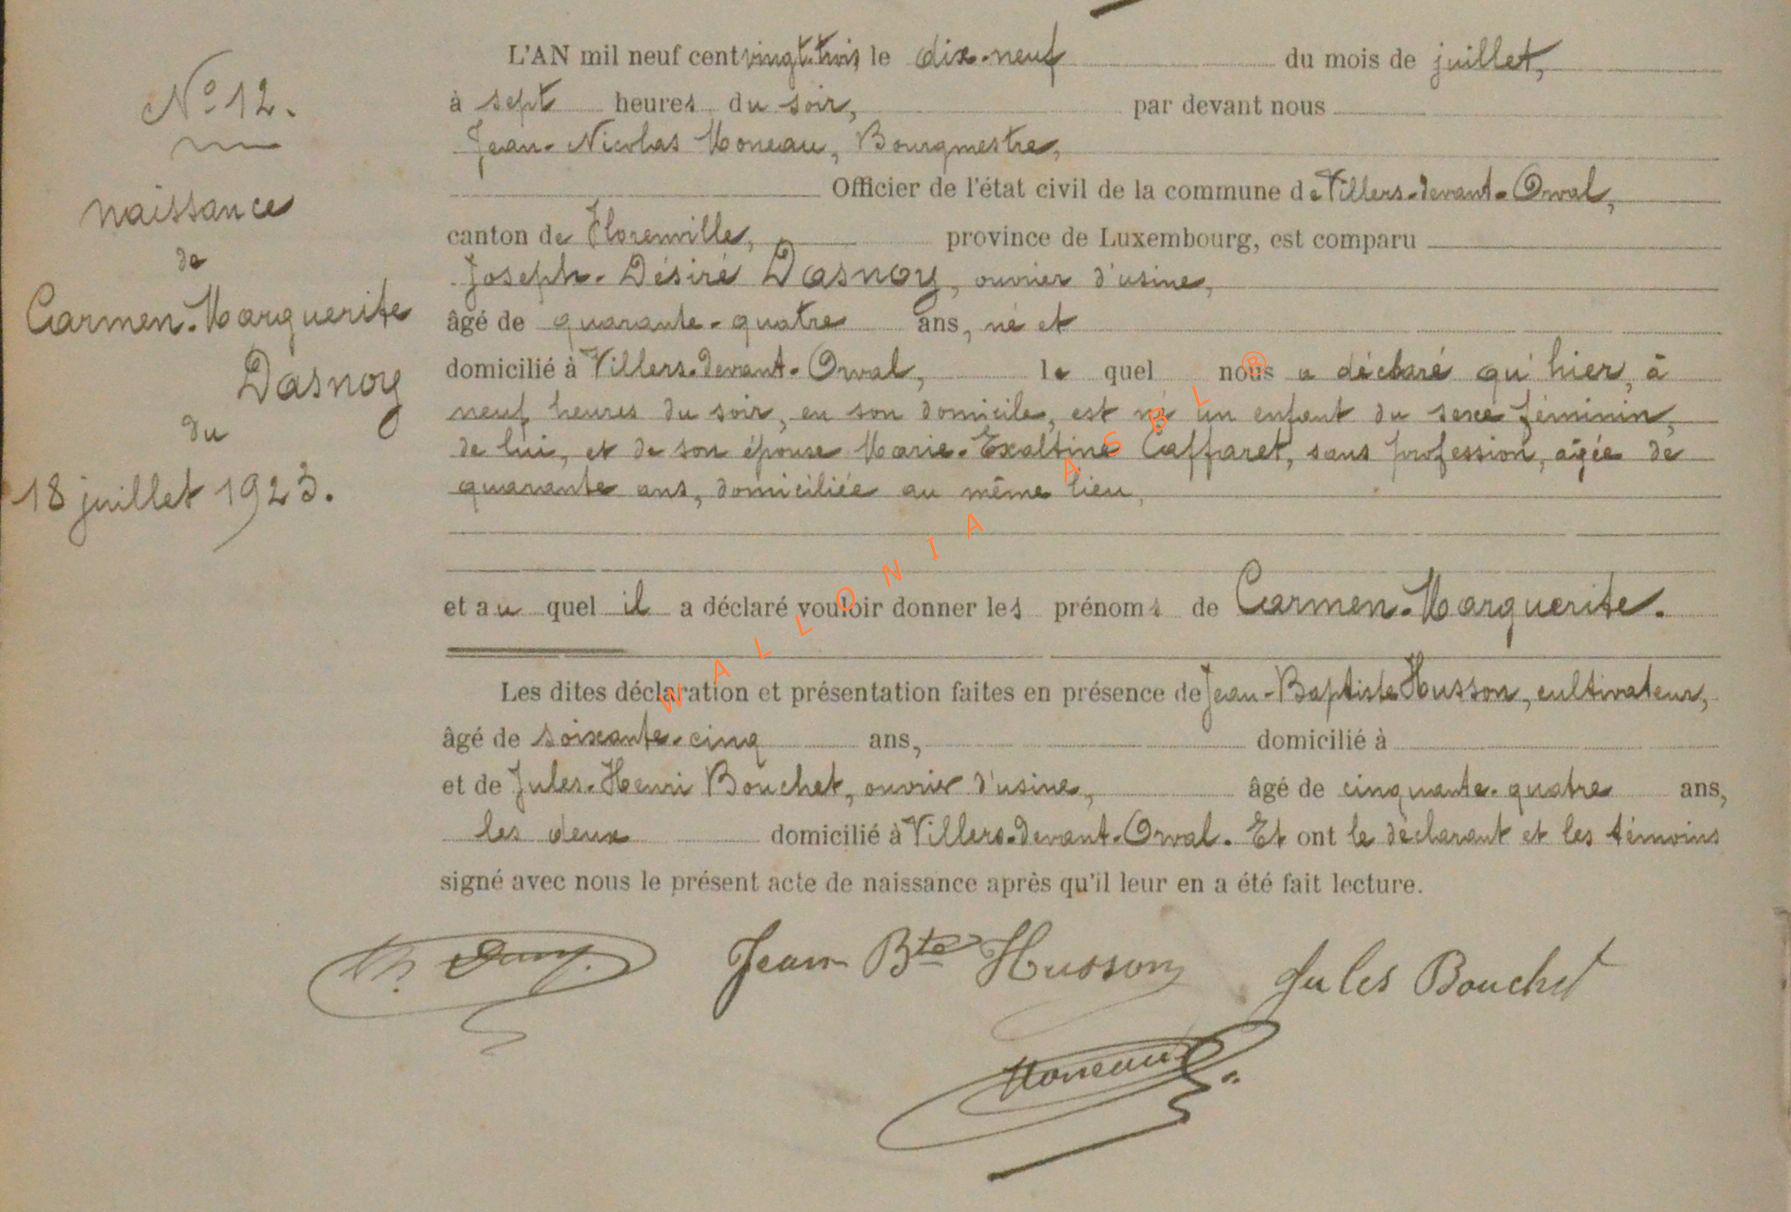 N° 12.
naissance
de
Carmen-Marguerite
Dasnoy
du
18 juillet 1923.
L'AN mil neuf cent vingt-trois le dix-neuf du mois de juillet,
à sept heures du soir, par devant nous
Jean-Nicolas Moneau, Bourgmestre,
Officier de l'état civil de la commune de Villers-devant-Orval,
canton de Florenville, province de Luxembourg, est comparu
Joseph-Désiré Dasnoy, ouvrier d'usine,
âgé de quarante-quatre ans, né et
domicilié à Villers-devant-Orval, le quel nous a déclaré qu'hier, à
neuf heures du soir, en son domicile, est né un enfant du sexe féminin,
de lui, et de son épouse Marie-Exaltine Caffaret, sans profession, âgée de
quarante ans, domiciliée au même lieu,
et au quel il a déclaré vouloir donner les prénoms de Carmen-Marguerite.
Les dites déclaration et présentation faites en présence de Jean-Baptiste Husson, cultivateur,
âgé de soixante-cinq ans, domicilié à
et de Jules-Henri Bouchet, ouvrier d'usine, âgé de cinquante-quatre ans,
les deux domicilié à Villers-devant-Orval. Et ont le déclarant et les témoins
signé avec nous le présent acte de naissance après qu'il leur en a été fait lecture.
Jean Bte Husson Jules Bouchet
Moneau
WALLONIA ASBL ®